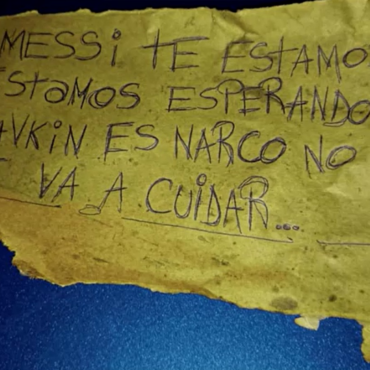 MESSi TE ESTAMO
STAMOS ESPERANDO
AVKiN ES NARCO NO
VA A CUiDAR...